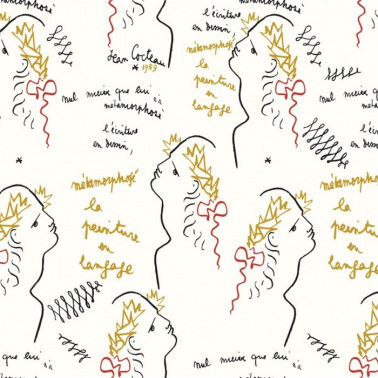 métamorphosé
l'écriture
en dessin,
Jean Cocteau
* 1959
métamorphosé
la
peinture
en
langage
nul mieux que lui n'a
métamorphosé
l'écriture
en dessin,
nul mieux
métamorphosé
métamorphosé
la
peinture
en
langage
métamorphosé
la
peinture
en
langage
que lui n'a
nul mieux que lui n'a
métamorphosé